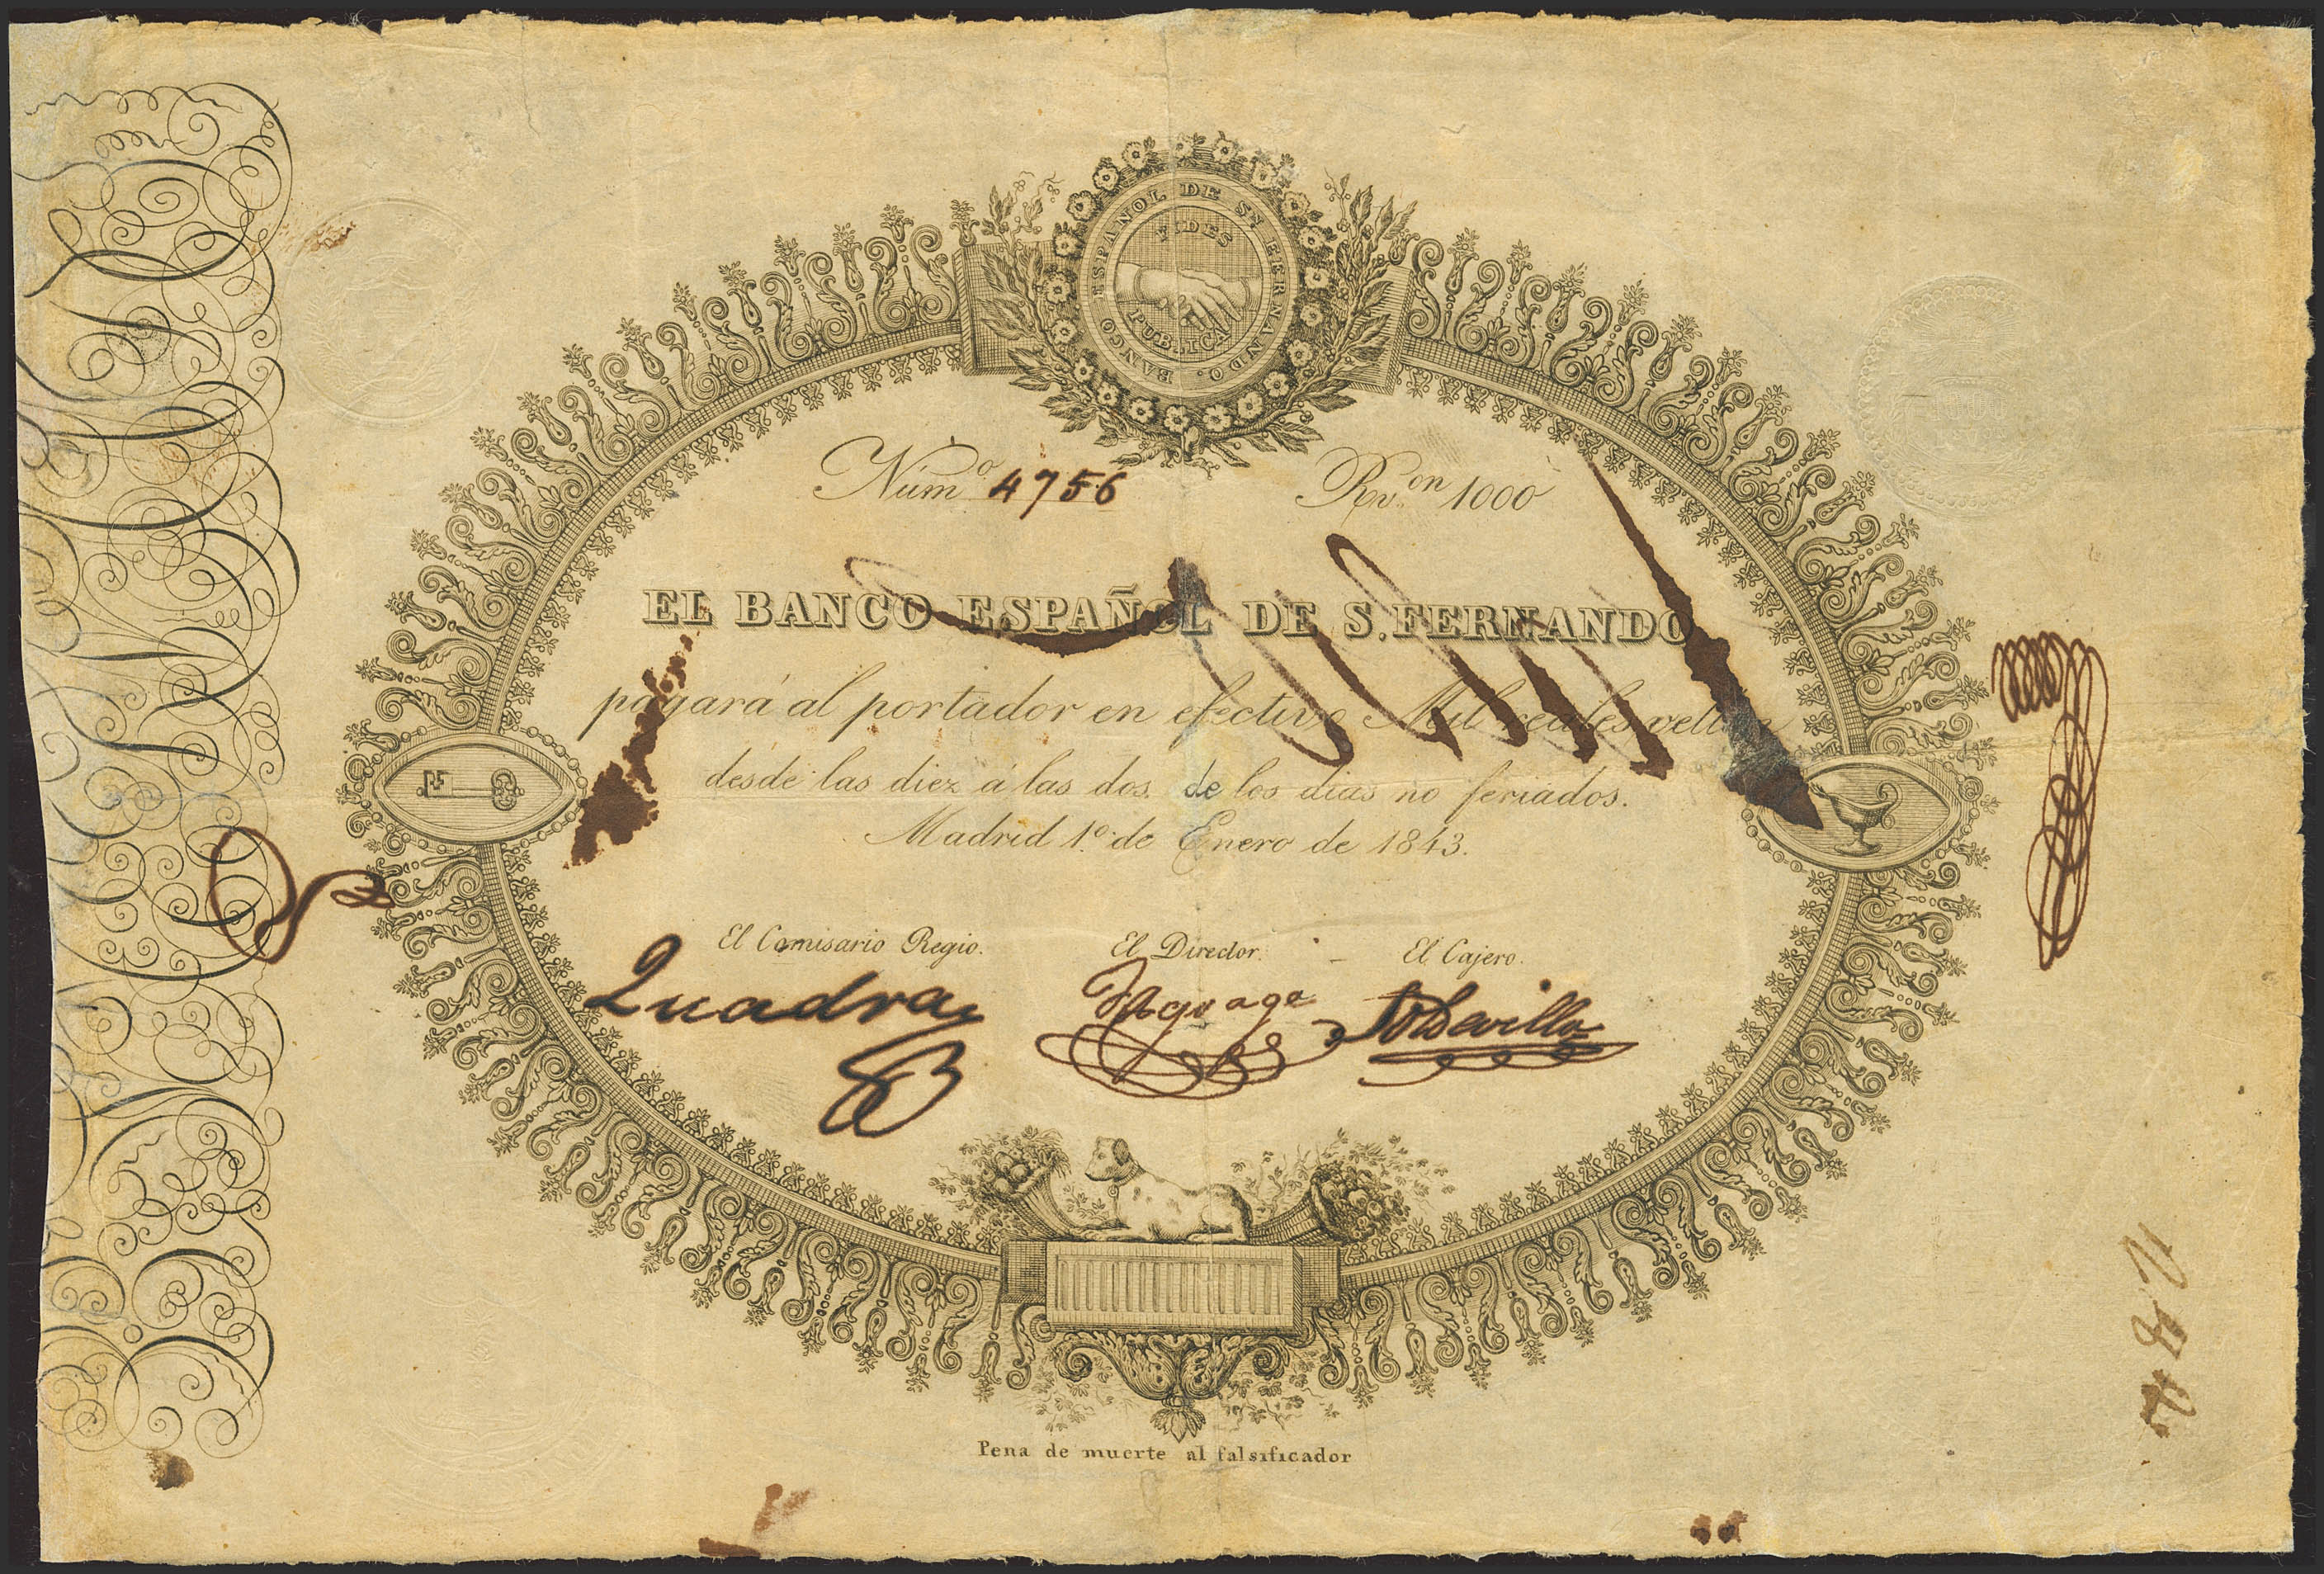 BANCO ESPAÑOL DE SN FERNANDO.
FIDES
PUBLICA
Núm.º 4756 Rv.on 1000
EL BANCO ESPAÑOL DE S. FERNANDO
pagará al portador en efectivo Mil reales vellon
desde las diez á las dos de los dias no feriados.
Madrid 1.º de Enero de 1843.
El Comisario Regio. El Director. El Cajero.
Quadra
Pena de muerte al falsificador